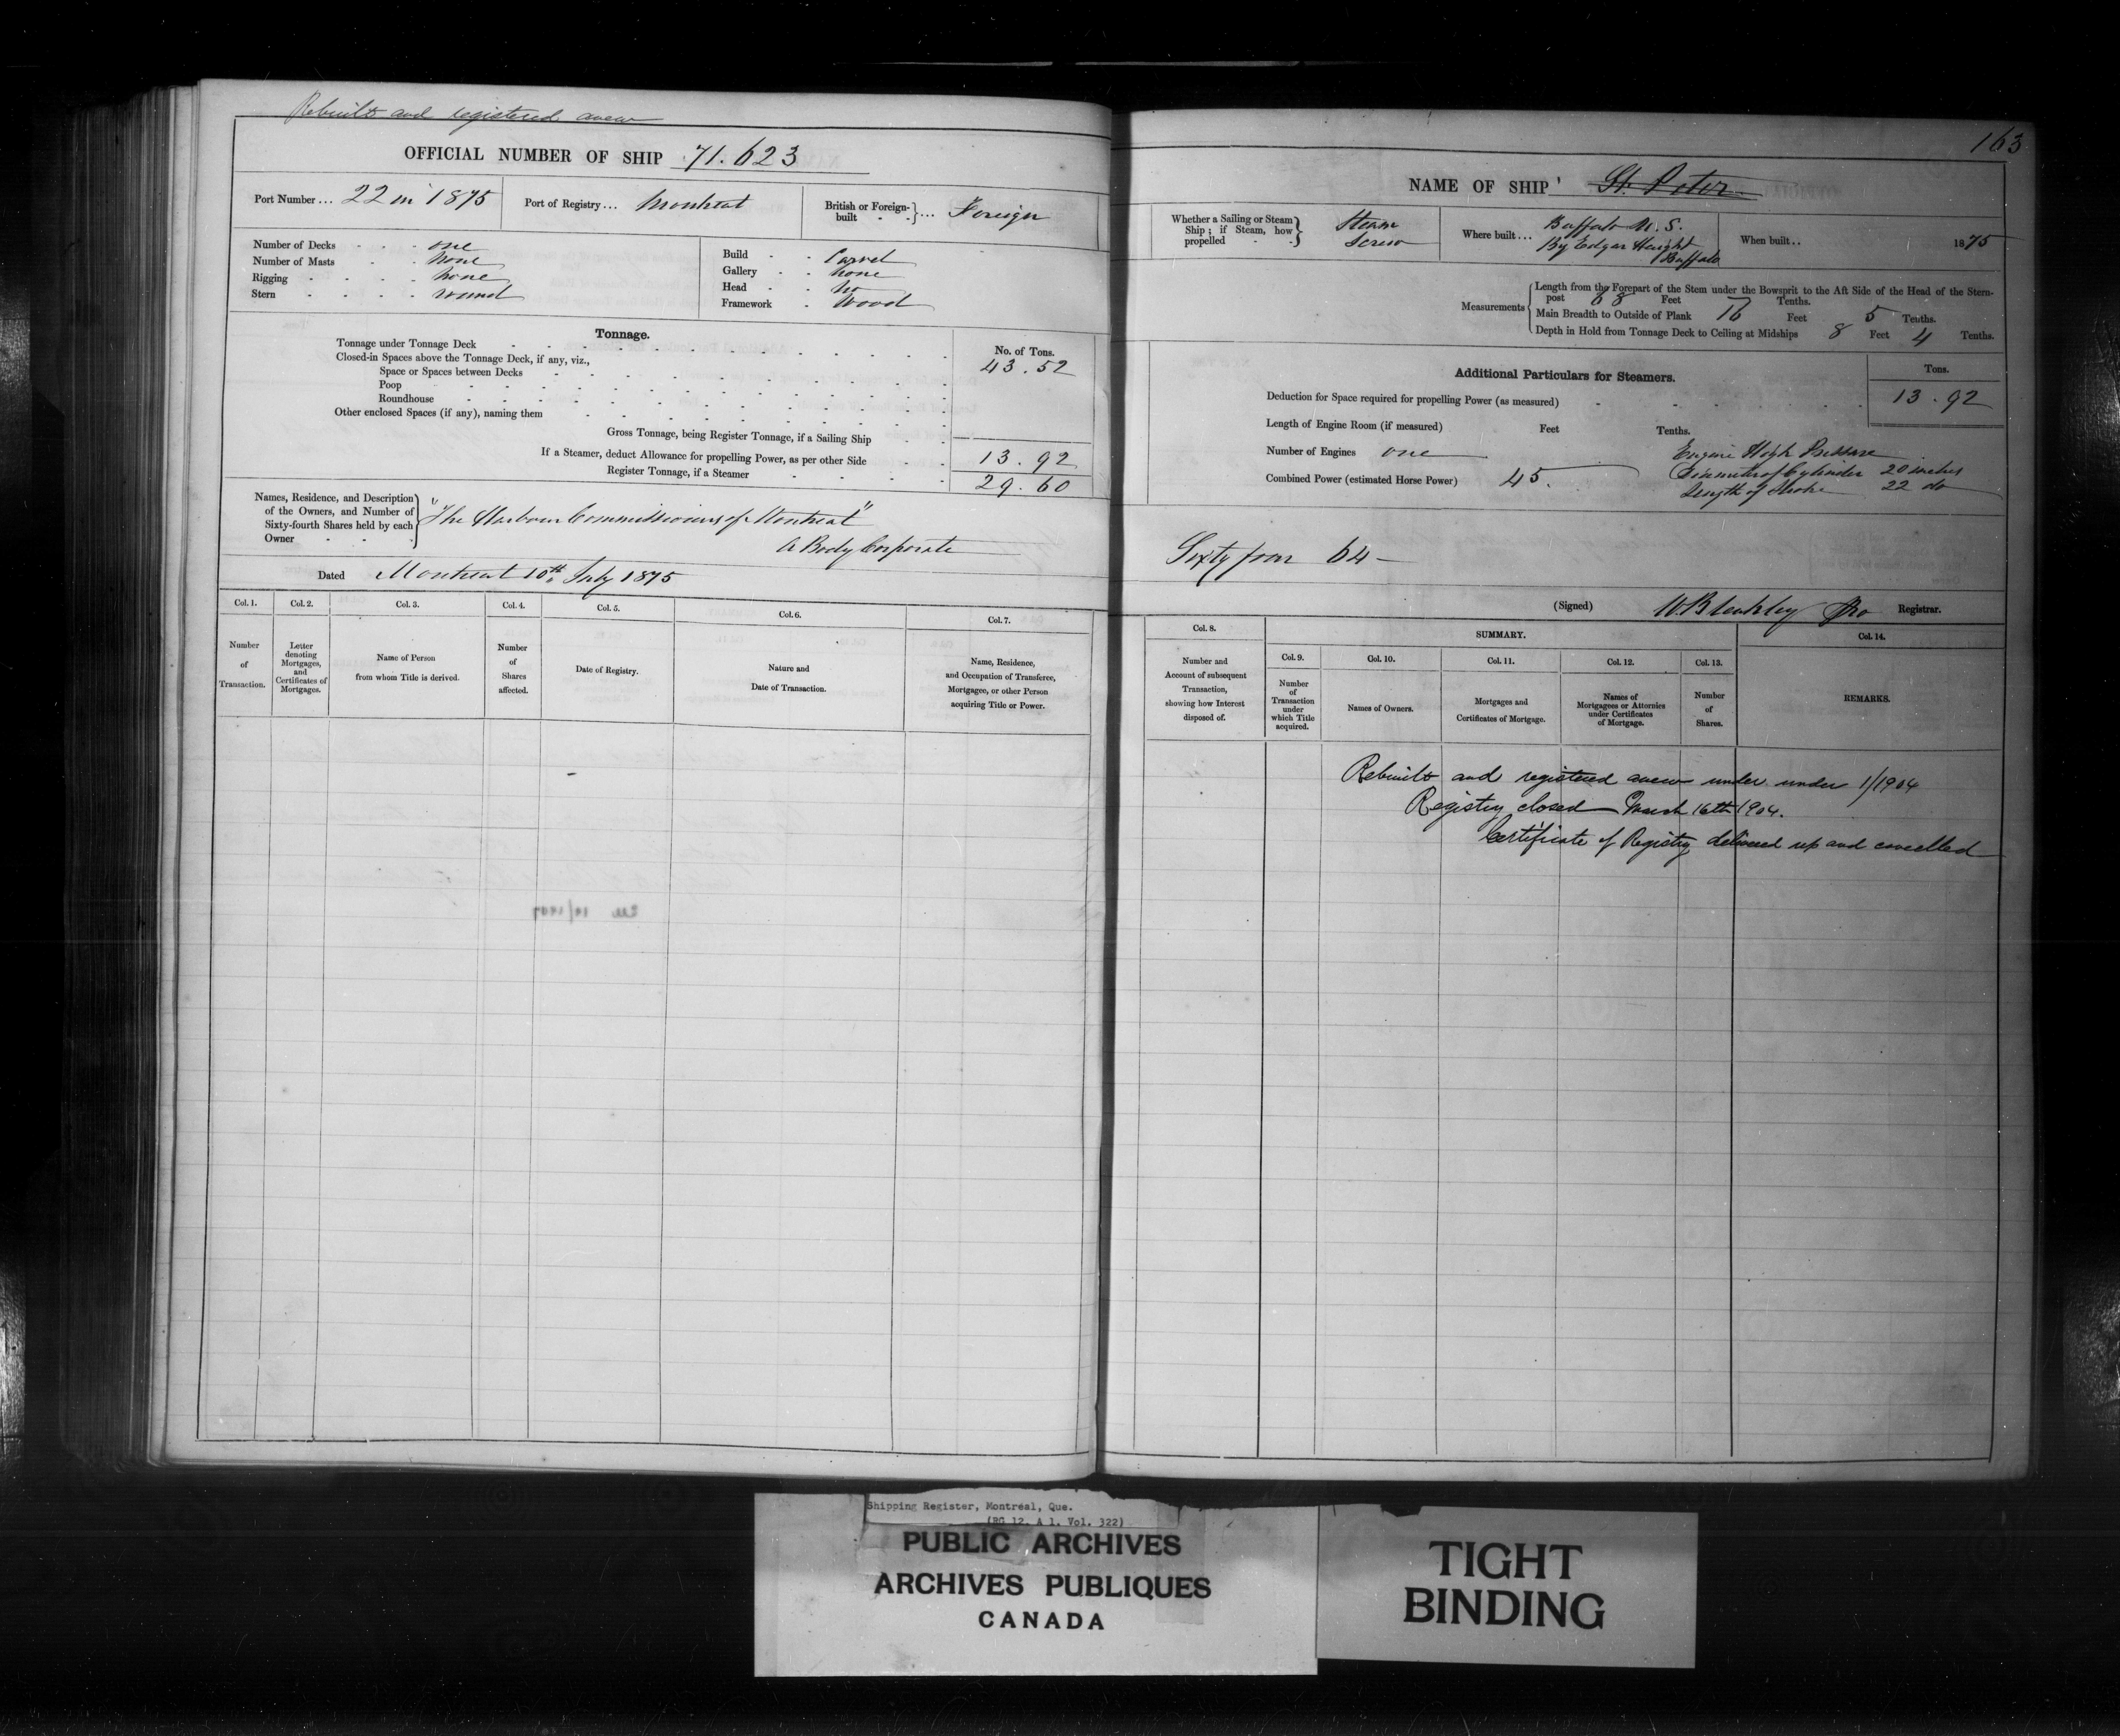 Rebuilt and registered anew
OFFICIAL NUMBER OF SHIP 71.623
Port Number... 22 in 1875
Port of Registry... Montreal
British or Foreign-built ... Foreign
Number of Decks one
Number of Masts none
Rigging none
Stern round
Build Carvel
Gallery none
Head no
Framework Wood
Tonnage.
No. of Tons.
Tonnage under Tonnage Deck 43.52
Closed-in Spaces above the Tonnage Deck, if any, viz.,
Space or Spaces between Decks
Poop
Roundhouse
Other enclosed Spaces (if any), naming them
Gross Tonnage, being Register Tonnage, if a Sailing Ship
If a Steamer, deduct Allowance for propelling Power, as per other Side 13.92
Register Tonnage, if a Steamer 29.60
Names, Residence, and Description
of the Owners, and Number of
Sixty-fourth Shares held by each
Owner
"The Harbour Commissioners of Montreal"
A Body Corporate
Dated Montreal 10th July 1875
Col. 1. Col. 2. Col. 3. Col. 4. Col. 5. Col. 6. Col. 7.
Number of Transaction.
Letter denoting Mortgages, and Certificates of Mortgages.
Name of Person from whom Title is derived.
Number of Shares affected.
Date of Registry.
Nature and Date of Transaction.
Name, Residence, and Occupation of Transferee, Mortgagee, or other Person acquiring Title or Power.
163
NAME OF SHIP St. Peter
Whether a Sailing or Steam Ship; if Steam, how propelled Steam Screw
Where built... Buffalo U.S.
By Edgar Haight
Buffalo
When built.. 1875
Measurements
Length from the Forepart of the Stem under the Bowsprit to the Aft Side of the Head of the Stern-
post 68 Feet Tenths.
Main Breadth to Outside of Plank 16 Feet 5 Tenths.
Depth in Hold from Tonnage Deck to Ceiling at Midships 8 Feet 4 Tenths.
Additional Particulars for Steamers.
Tons.
Deduction for Space required for propelling Power (as measured) 13.92
Length of Engine Room (if measured) Feet Tenths.
Number of Engines one
Engine High Pressure
Combined Power (estimated Horse Power) 45.
Diameter of Cylinder 20 inches
Length of Stroke 22 do
Sixty four 64
(Signed) W Bleakley Pro Registrar.
Col. 8. SUMMARY. Col. 14.
Col. 9. Col. 10. Col. 11. Col. 12. Col. 13.
Number and Account of subsequent Transaction, showing how Interest disposed of.
Number of Transaction under which Title acquired.
Names of Owners.
Mortgages and Certificates of Mortgage.
Names of Mortgagees or Attornies under Certificates of Mortgage.
Number of Shares.
REMARKS.
Rebuilt and registered anew under under 1/1904
Registry closed March 16th 1904.
Certificate of Registry delivered up and cancelled
Shipping Register, Montréal, Que.
(RG 12, A 1, Vol. 322)
PUBLIC ARCHIVES
ARCHIVES PUBLIQUES
CANADA
TIGHT
BINDING